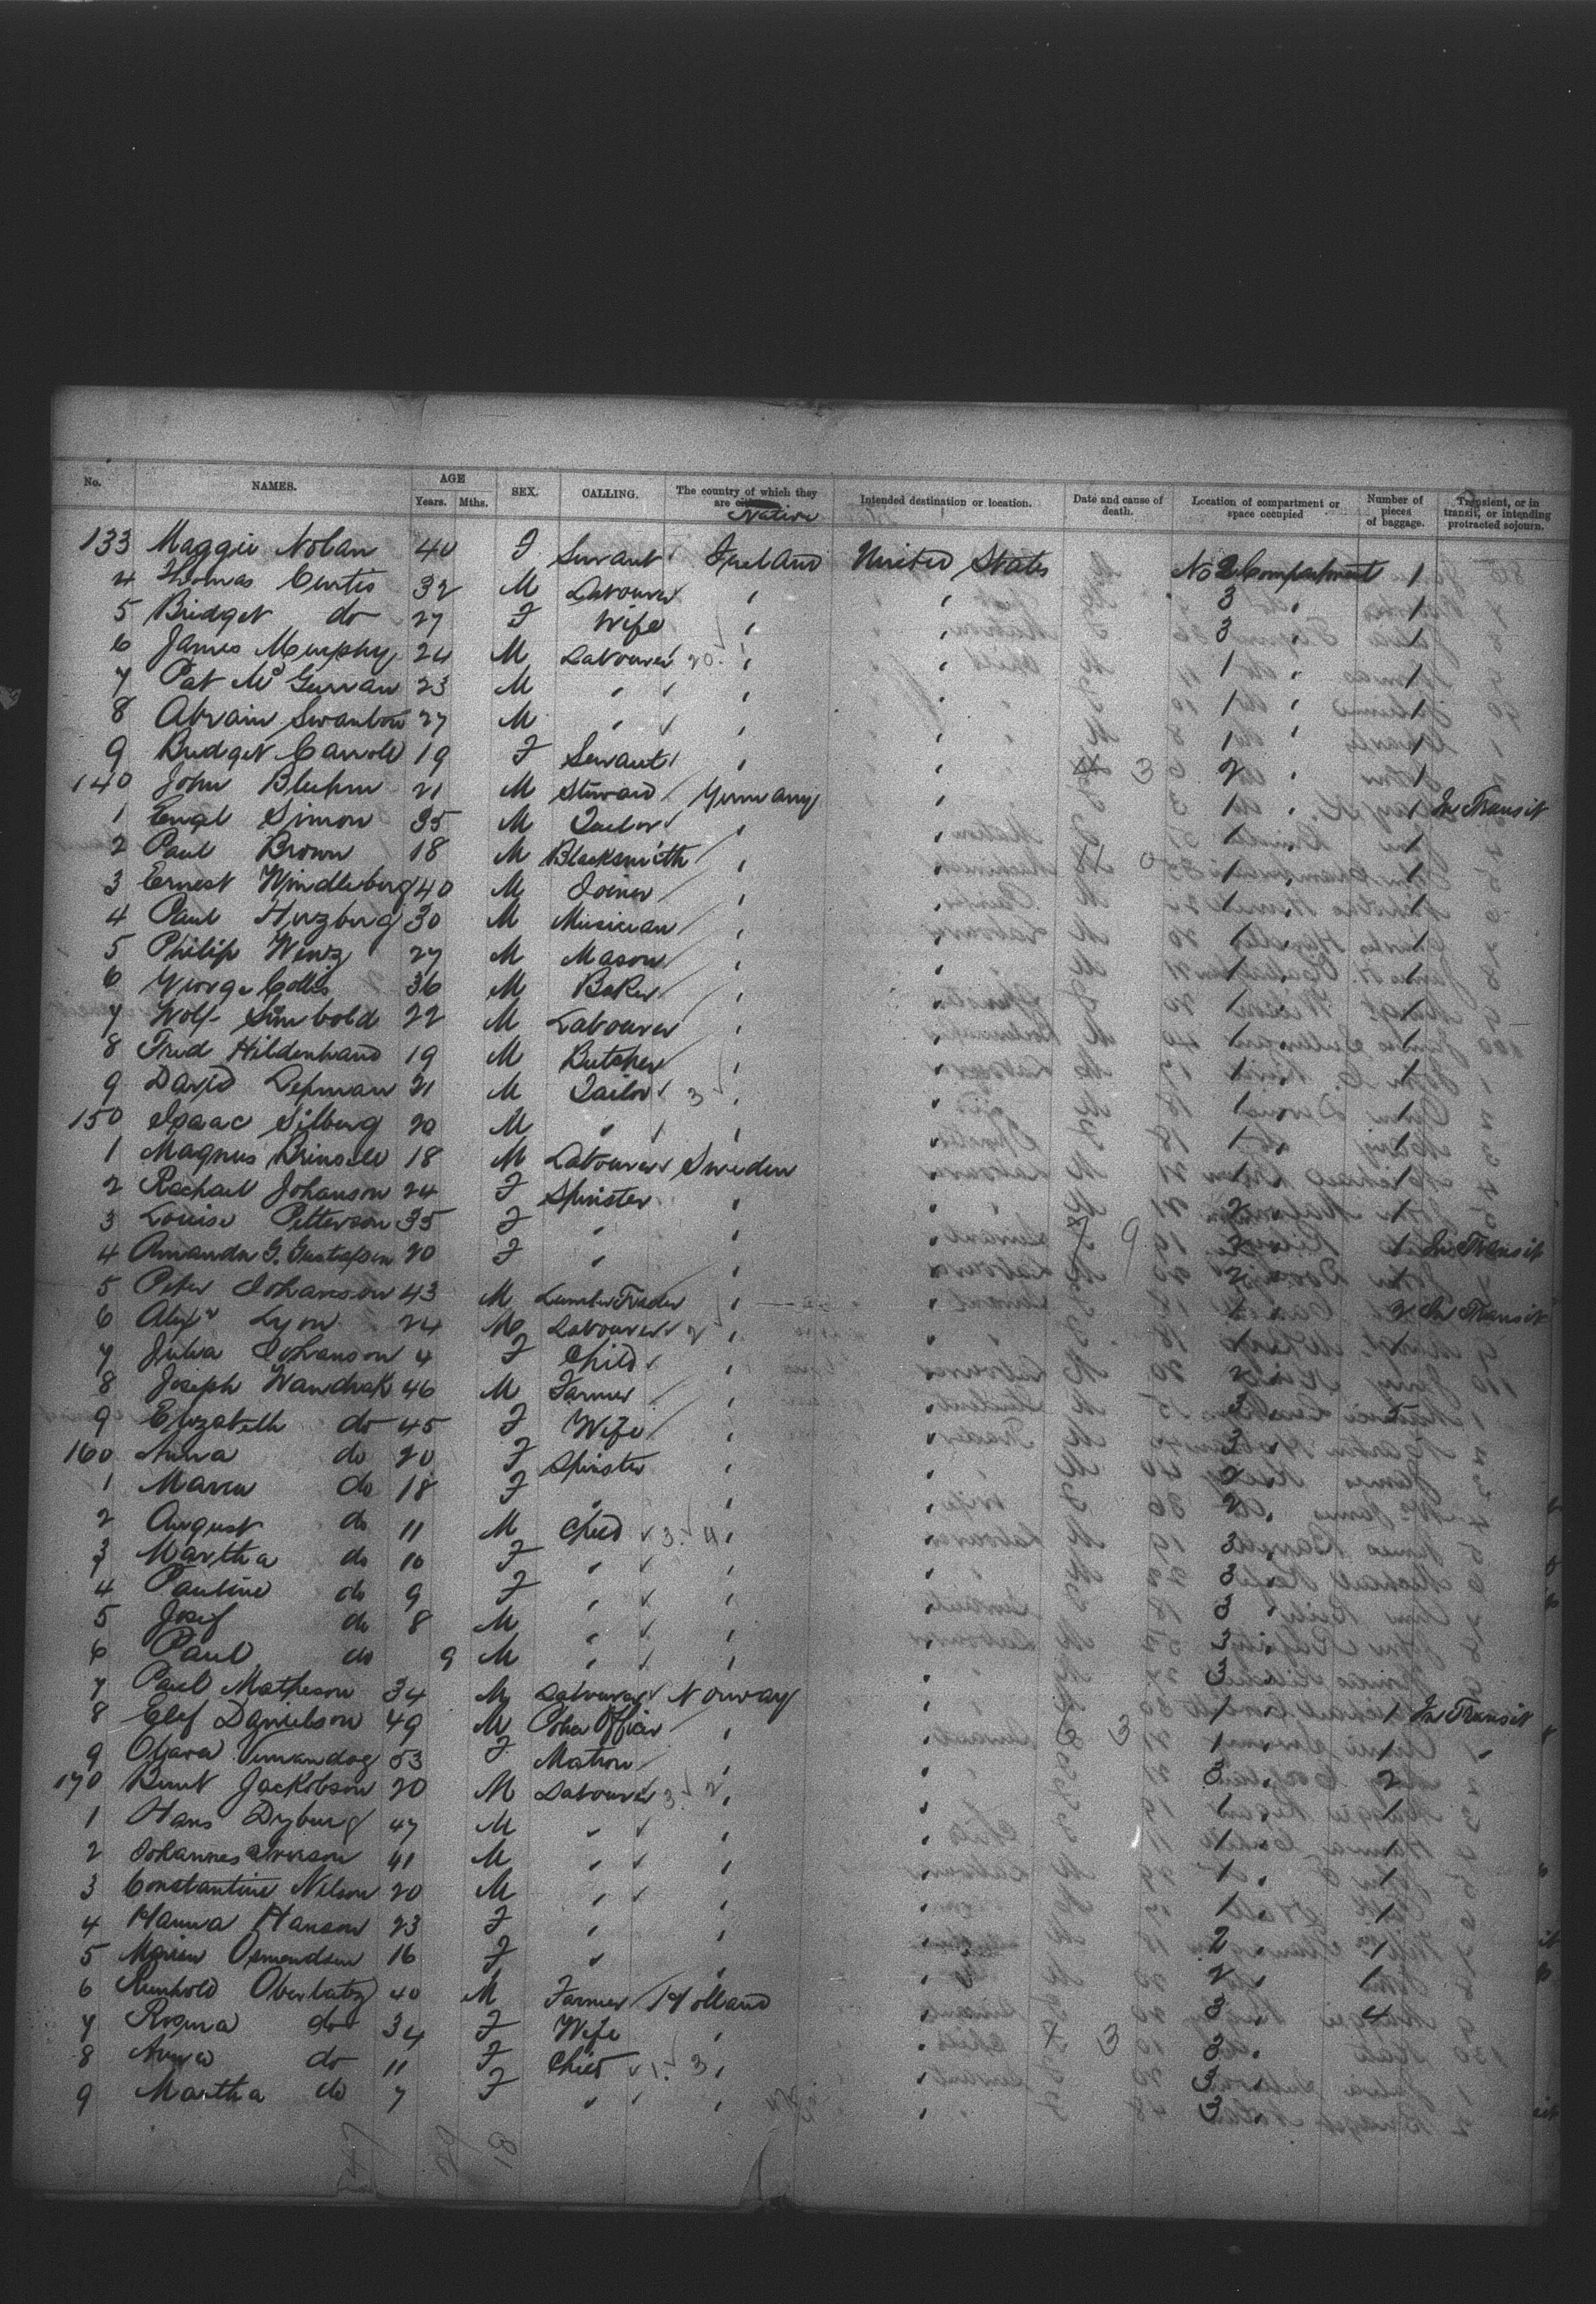 No. NAMES. AGE Years. Mths. SEX. CALLING. The country of which they are Native Intended destination or location. Date and cause of death. Location of compartment or space occupied Number of pieces of baggage. Transient, or in transit, or intending protracted sojourn.
133 Maggie Nolan 40 F Servant Ireland United States No 2 Compartment 1
4 Thomas Curtis 32 M Labourer " " 3 " 1
5 Bridget do 27 F Wife " " 3 " 1
6 James Murphy 24 M Labourer 20 " " 1 " 1
7 Pat McGurran 23 M " " " 1 " 1
8 Abram Swanton 27 M " " " 1 " 1
9 Bridget Carroll 19 F Servant " " 2 " 1
140 John Bluhm 21 M Steward Germany " 1 " 1 In Transit
1 Engl Simon 35 M Tailor " " 1 " 1
2 Paul Brown 18 M Blacksmith " " 1 " 1
3 Ernest Windleberg 40 M Joiner " " 1 " 1
4 Paul Herzberg 30 M Musician " " 1 " 1
5 Philip Wenz 27 M Mason " " 1 " 1
6 George Collis 36 M Baker " " 1 " 1
7 Wolf Simbold 22 M Labourer " " 1 " 1
8 Fred Hildenhand 19 M Butcher " " 1 " 1
9 David Lepman 21 M Tailor 3 " " 1 " 1
150 Isaac Silberg 20 M " " " 1 " 1
1 Magnus 18 M Labourer Sweden " 1 " 1
2 Rachael Johanson 24 F Spinster " " 2 " 1
3 Louise Petterson 35 F " " " 2 " 1 In Transit
4 Amanda G. Gustafson 20 F " " " 2 " 1
5 Peter Johanson 43 M Lumber Trader " " 1 " 3 In Transit
6 Alexr Lyon 24 M Labourer 2 " " 1 " 1
7 Julia Johanson 4 F Child " " 2
8 Joseph Wandrak 46 M Farmer " " 3 " 5
9 Elizabeth do 45 F Wife " " 3 "
160 Anna do 20 F Spinster " " 2 "
1 Maria do 18 F " " " 2 "
2 August do 11 M Child 3 4 " " 3 "
3 Martha do 10 F " " " 3 "
4 Pauline do 9 F " " " 3 "
5 Josef do 8 M " " " 3 "
6 Paul do 9 M " " " 3 "
7 Paul Matheson 34 M Labourer Norway " 1 " 1 In Transit
8 Elef Danielson 49 M Police Officer " " 1 " 1 "
9 Olava 53 F Matron " " 3 " 2
170 Bernt Jackobson 20 M Labourer 3 2 " " 1 " 1
1 Hans Dyburg 47 M " " " 1 " 1
2 Johannes Iverson 41 M " " " 1 " 1
3 Constantine Nelson 20 M " " " 1 " 1
4 Hanna Hanson 23 F " " " 2 " 1
5 Marien Osmundsen 16 F " " " 2 " 1
6 Reinhold Oberlatz 40 M Farmer Holland " 3 " 4
7 Rosina do 34 F Wife " " 3 "
8 Anna do 11 F Child 1 3 " " 3 "
9 Martha do 7 F " " " 3 "